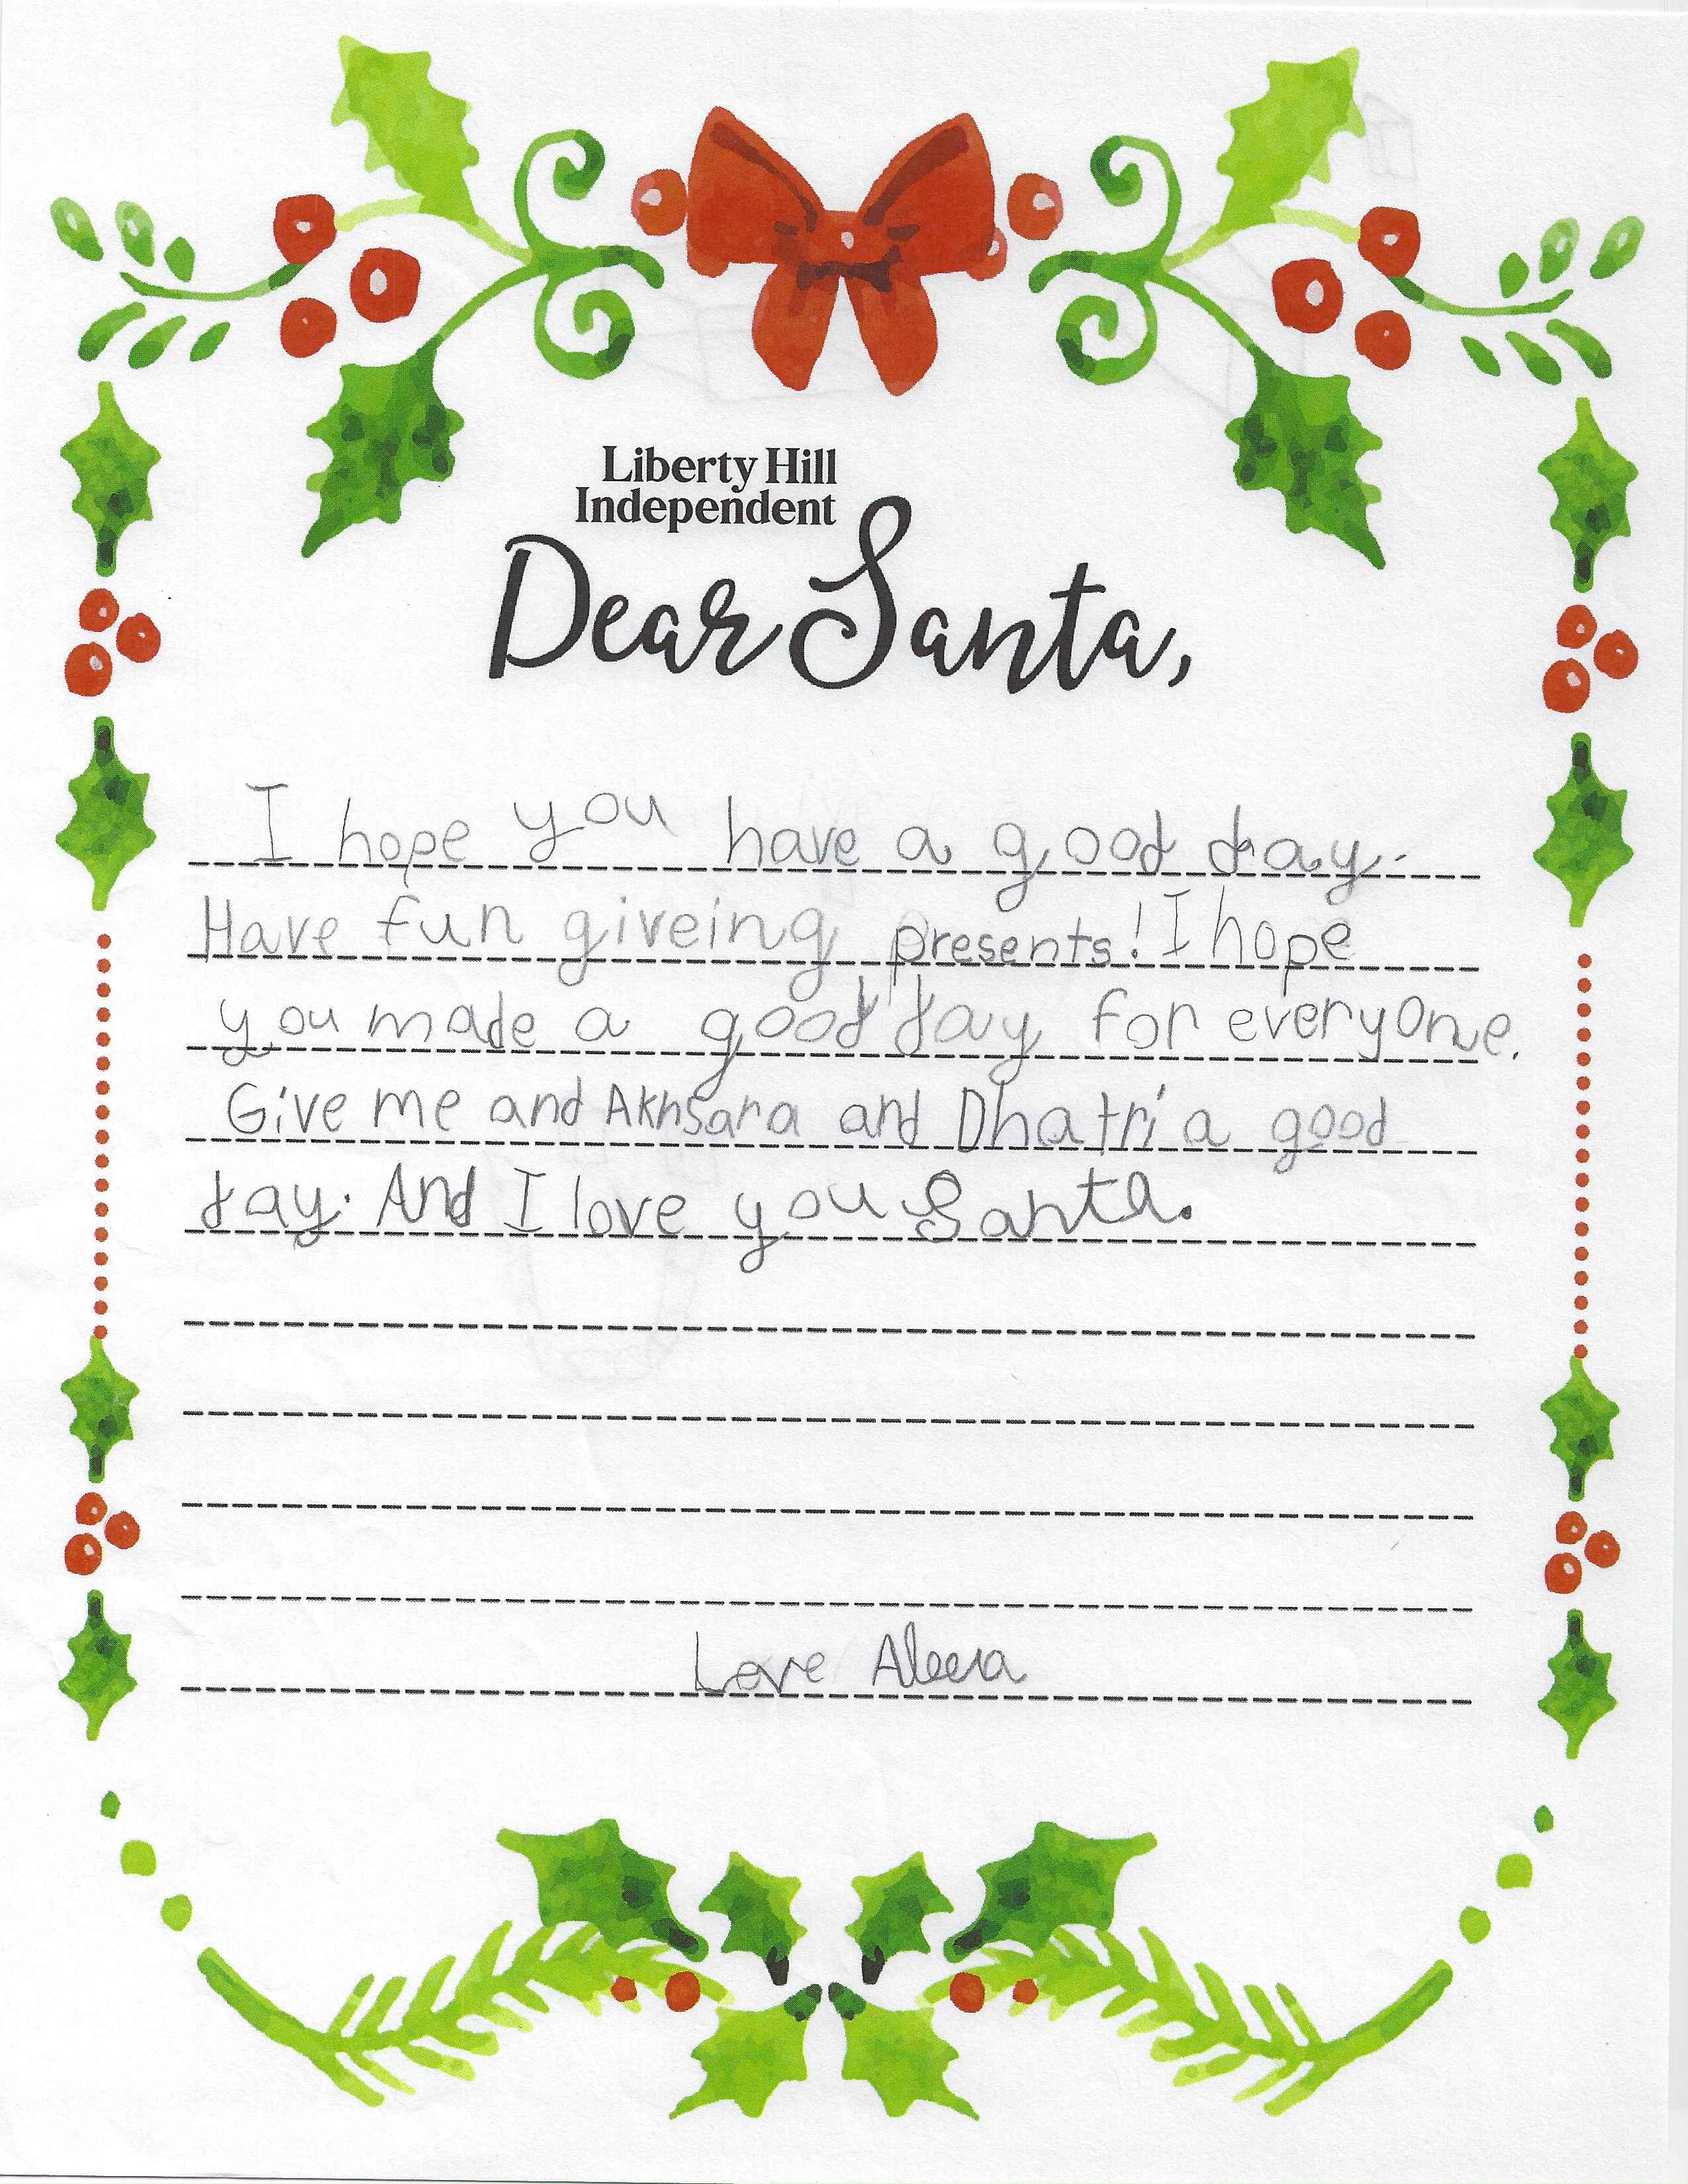 Liberty Hill
Independent
Dear Santa,
I hope you have a good day.
Have fun giveing presents! I hope
you made a good day for everyone.
Give me and Akhsara and Dhatri a good
day. And I love you Santa.
Love